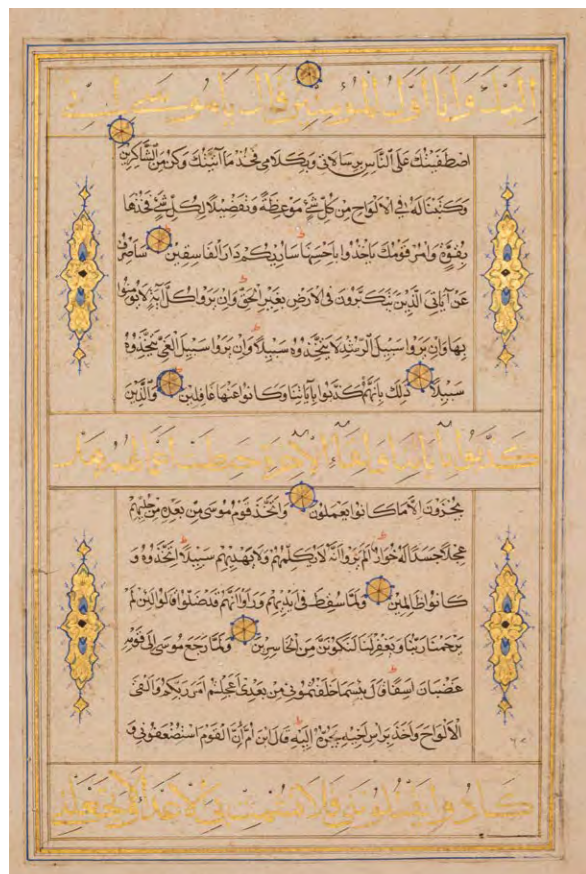 إِلَيْكَ وَأَنَا أَوَّلُ الْمُؤْمِنِينَ قَالَ يَا مُوسَى إِنِّي
اصْطَفَيْتُكَ عَلَى النَّاسِ بِرِسَالَاتِي وَبِكَلَامِي فَخُذْ مَا آتَيْتُكَ وَكُنْ مِنَ الشَّاكِرِينَ
وَكَتَبْنَا لَهُ فِي الْأَلْوَاحِ مِنْ كُلِّ شَيْءٍ مَوْعِظَةً وَتَفْصِيلًا لِكُلِّ شَيْءٍ فَخُذْهَا
بِقُوَّةٍ وَأْمُرْ قَوْمَكَ يَأْخُذُوا بِأَحْسَنِهَا سَأُرِيكُمْ دَارَ الْفَاسِقِينَ سَأَصْرِفُ
عَنْ آيَاتِيَ الَّذِينَ يَتَكَبَّرُونَ فِي الْأَرْضِ بِغَيْرِ الْحَقِّ وَإِنْ يَرَوْا كُلَّ آيَةٍ لَا يُؤْمِنُوا
بِهَا وَإِنْ يَرَوْا سَبِيلَ الرُّشْدِ لَا يَتَّخِذُوهُ سَبِيلًا وَإِنْ يَرَوْا سَبِيلَ الْغَيِّ يَتَّخِذُوهُ
سَبِيلًا ذَلِكَ بِأَنَّهُمْ كَذَّبُوا بِآيَاتِنَا وَكَانُوا عَنْهَا غَافِلِينَ وَالَّذِينَ
كَذَّبُوا بِآيَاتِنَا وَلِقَاءِ الْآخِرَةِ حَبِطَتْ أَعْمَالُهُمْ هَلْ
يُجْزَوْنَ إِلَّا مَا كَانُوا يَعْمَلُونَ وَاتَّخَذَ قَوْمُ مُوسَى مِنْ بَعْدِهِ مِنْ حُلِيِّهِمْ
عِجْلًا جَسَدًا لَهُ خُوَارٌ أَلَمْ يَرَوْا أَنَّهُ لَا يُكَلِّمُهُمْ وَلَا يَهْدِيهِمْ سَبِيلًا اتَّخَذُوهُ وَ
كَانُوا ظَالِمِينَ وَلَمَّا سُقِطَ فِي أَيْدِيهِمْ وَرَأَوْا أَنَّهُمْ قَدْ ضَلُّوا قَالُوا لَئِنْ لَمْ
يَرْحَمْنَا رَبُّنَا وَيَغْفِرْ لَنَا لَنَكُونَنَّ مِنَ الْخَاسِرِينَ وَلَمَّا رَجَعَ مُوسَى إِلَى قَوْمِهِ
غَضْبَانَ أَسِفًا قَالَ بِئْسَمَا خَلَفْتُمُونِي مِنْ بَعْدِي أَعَجِلْتُمْ أَمْرَ رَبِّكُمْ وَأَلْقَى
الْأَلْوَاحَ وَأَخَذَ بِرَأْسِ أَخِيهِ يَجُرُّهُ إِلَيْهِ قَالَ ابْنَ أُمَّ إِنَّ الْقَوْمَ اسْتَضْعَفُونِي وَ
كَادُوا يَقْتُلُونَنِي فَلَا تُشْمِتْ بِيَ الْأَعْدَاءَ وَلَا تَجْعَلْنِي